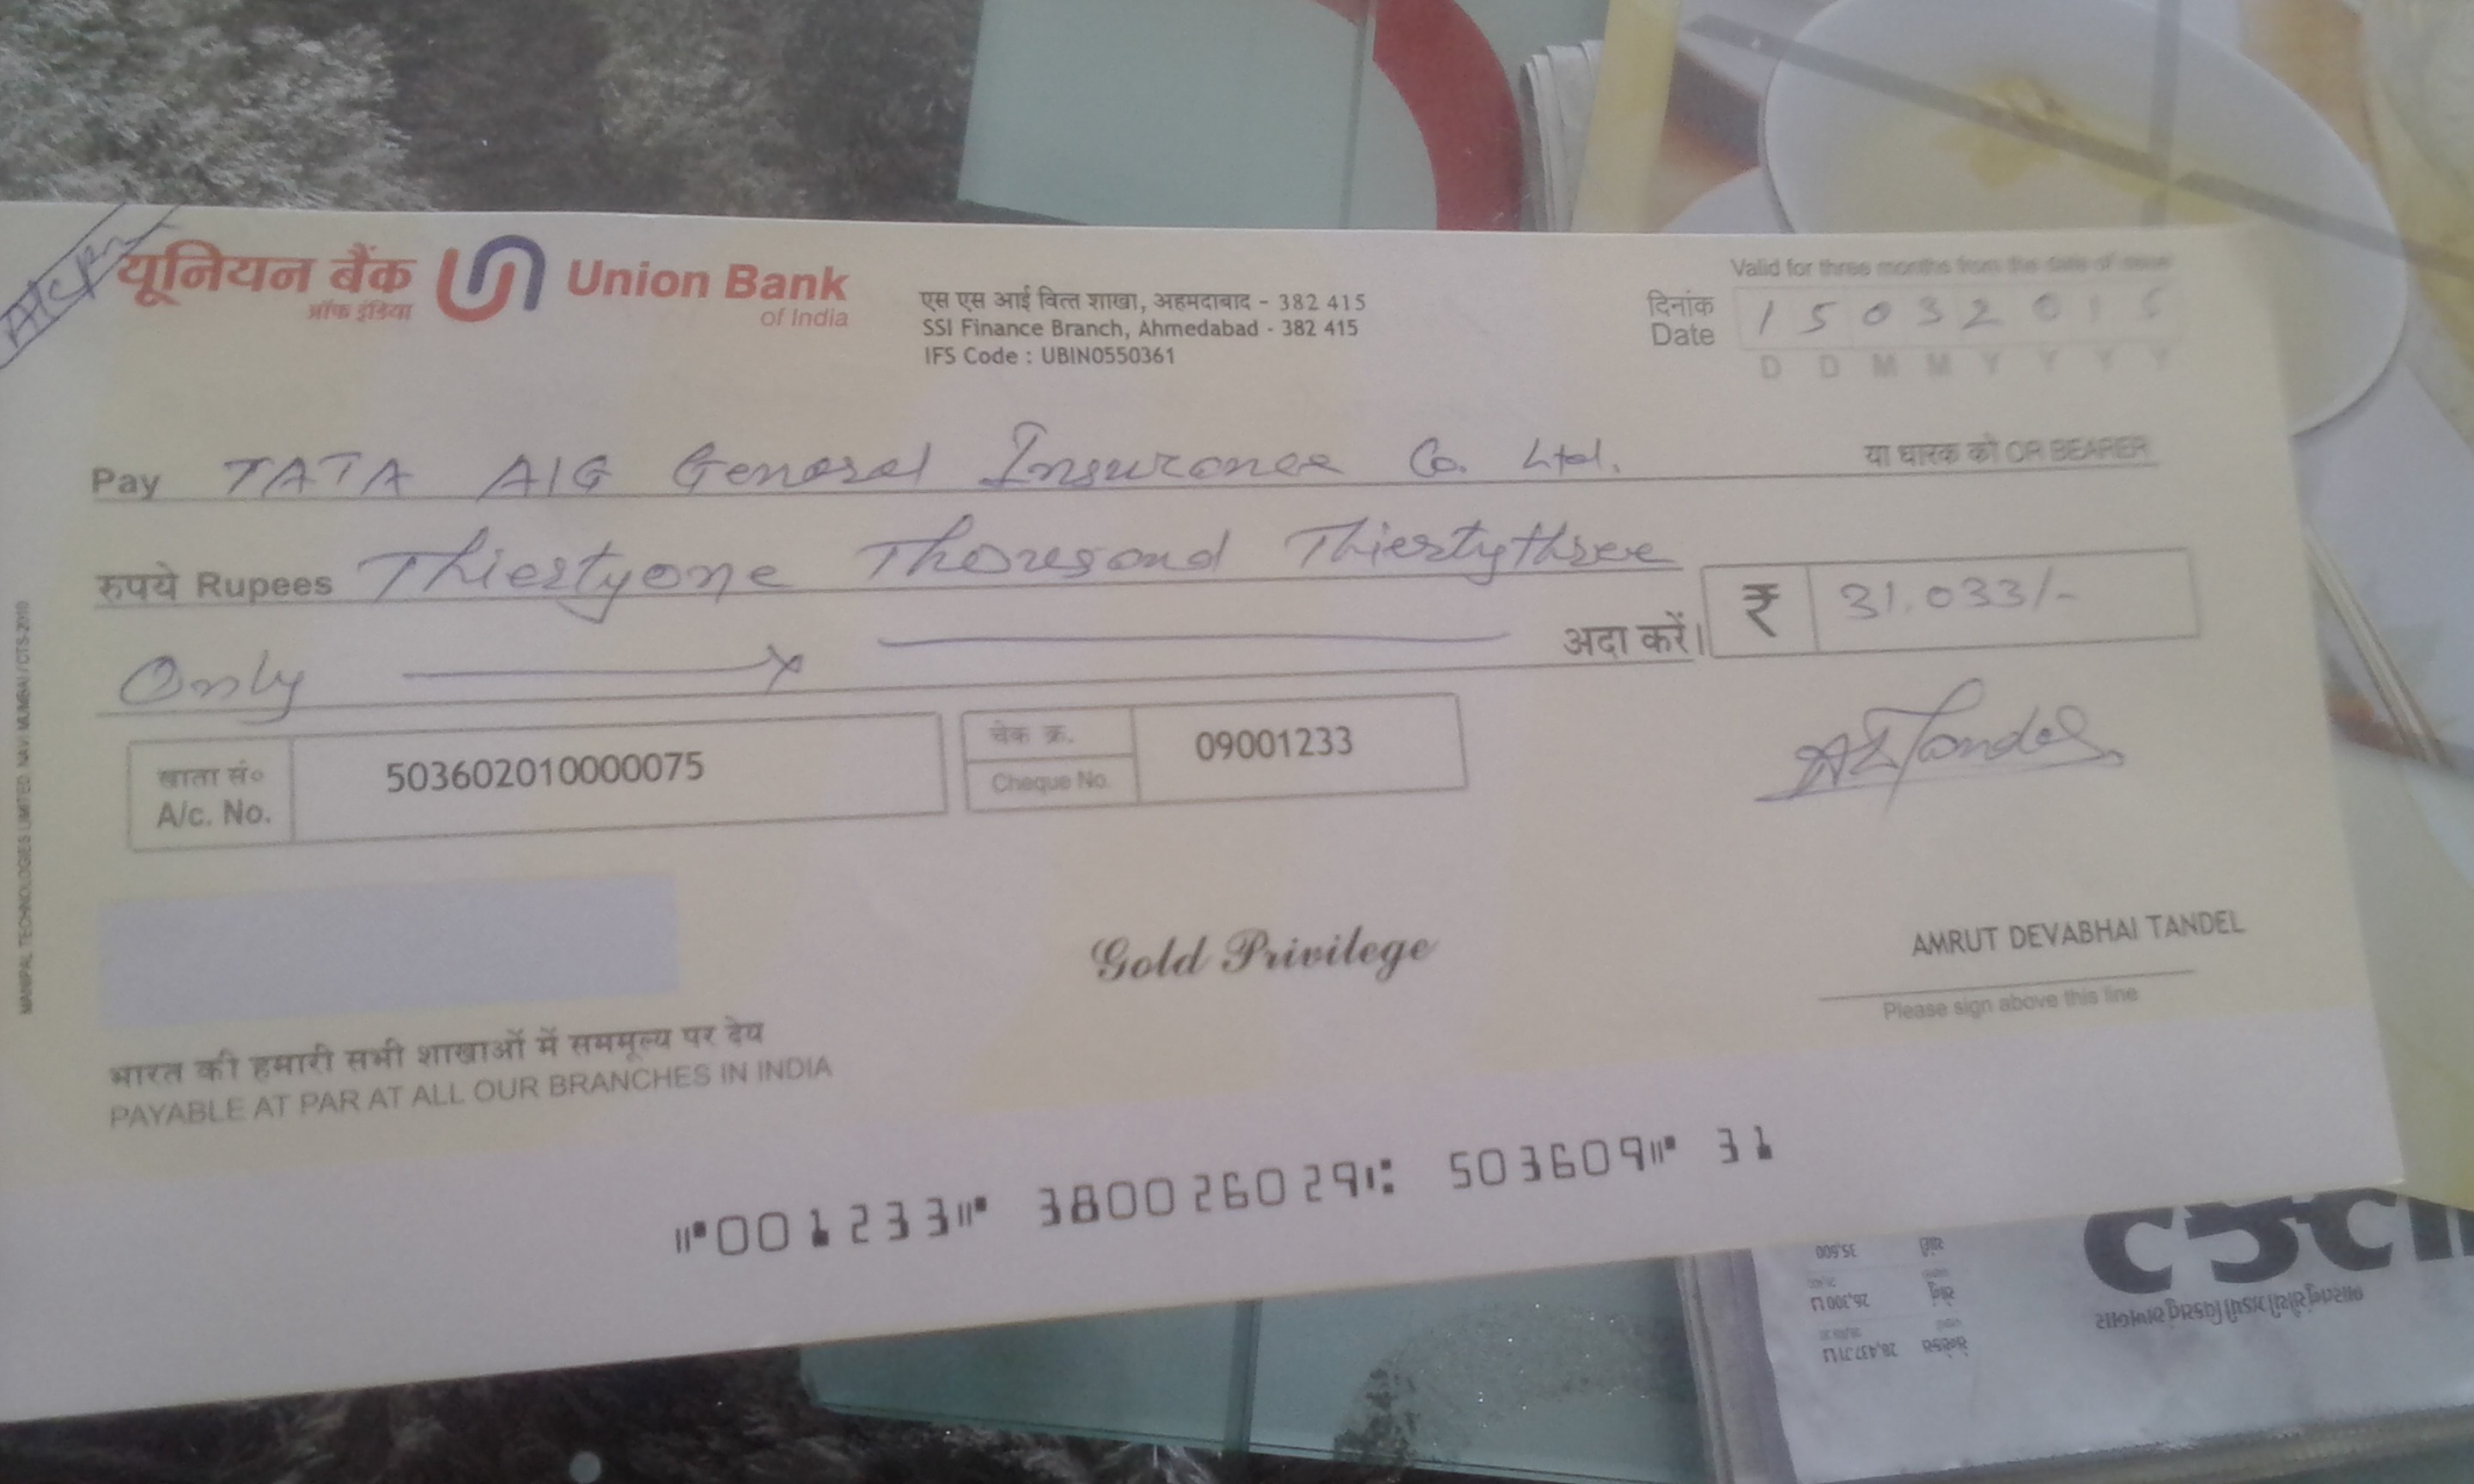 A/c Pay
यूनियन बैंक
ऑफ इंडिया
Union Bank
of India
एस एस आई वित्त शाखा, अहमदाबाद - 382 415
SSI Finance Branch, Ahmedabad - 382 415
IFS Code : UBIN0550361
Valid for three months from the date of issue
दिनांक
Date
1 5 0 3 2 0 1 5
D D M M Y Y Y Y
Pay TATA AIG General Insurance Co. Ltd. या धारक को OR BEARER
रुपये Rupees Thiertyone Thousand Thiertythree
Only अदा करें। ₹ 31,033/-
खाता सं०
A/c. No.
503602010000075
चेक क्र.
Cheque No.
09001233
A D Tandel
Gold Privilege
AMRUT DEVABHAI TANDEL
Please sign above this line
भारत की हमारी सभी शाखाओं में सममूल्य पर देय
PAYABLE AT PAR AT ALL OUR BRANCHES IN INDIA
⑈001233⑈ 380026029⑆ 503609⑈ 31
MANIPAL TECHNOLOGIES LIMITED, NAVI MUMBAI / CTS-2010
35,500
26,300